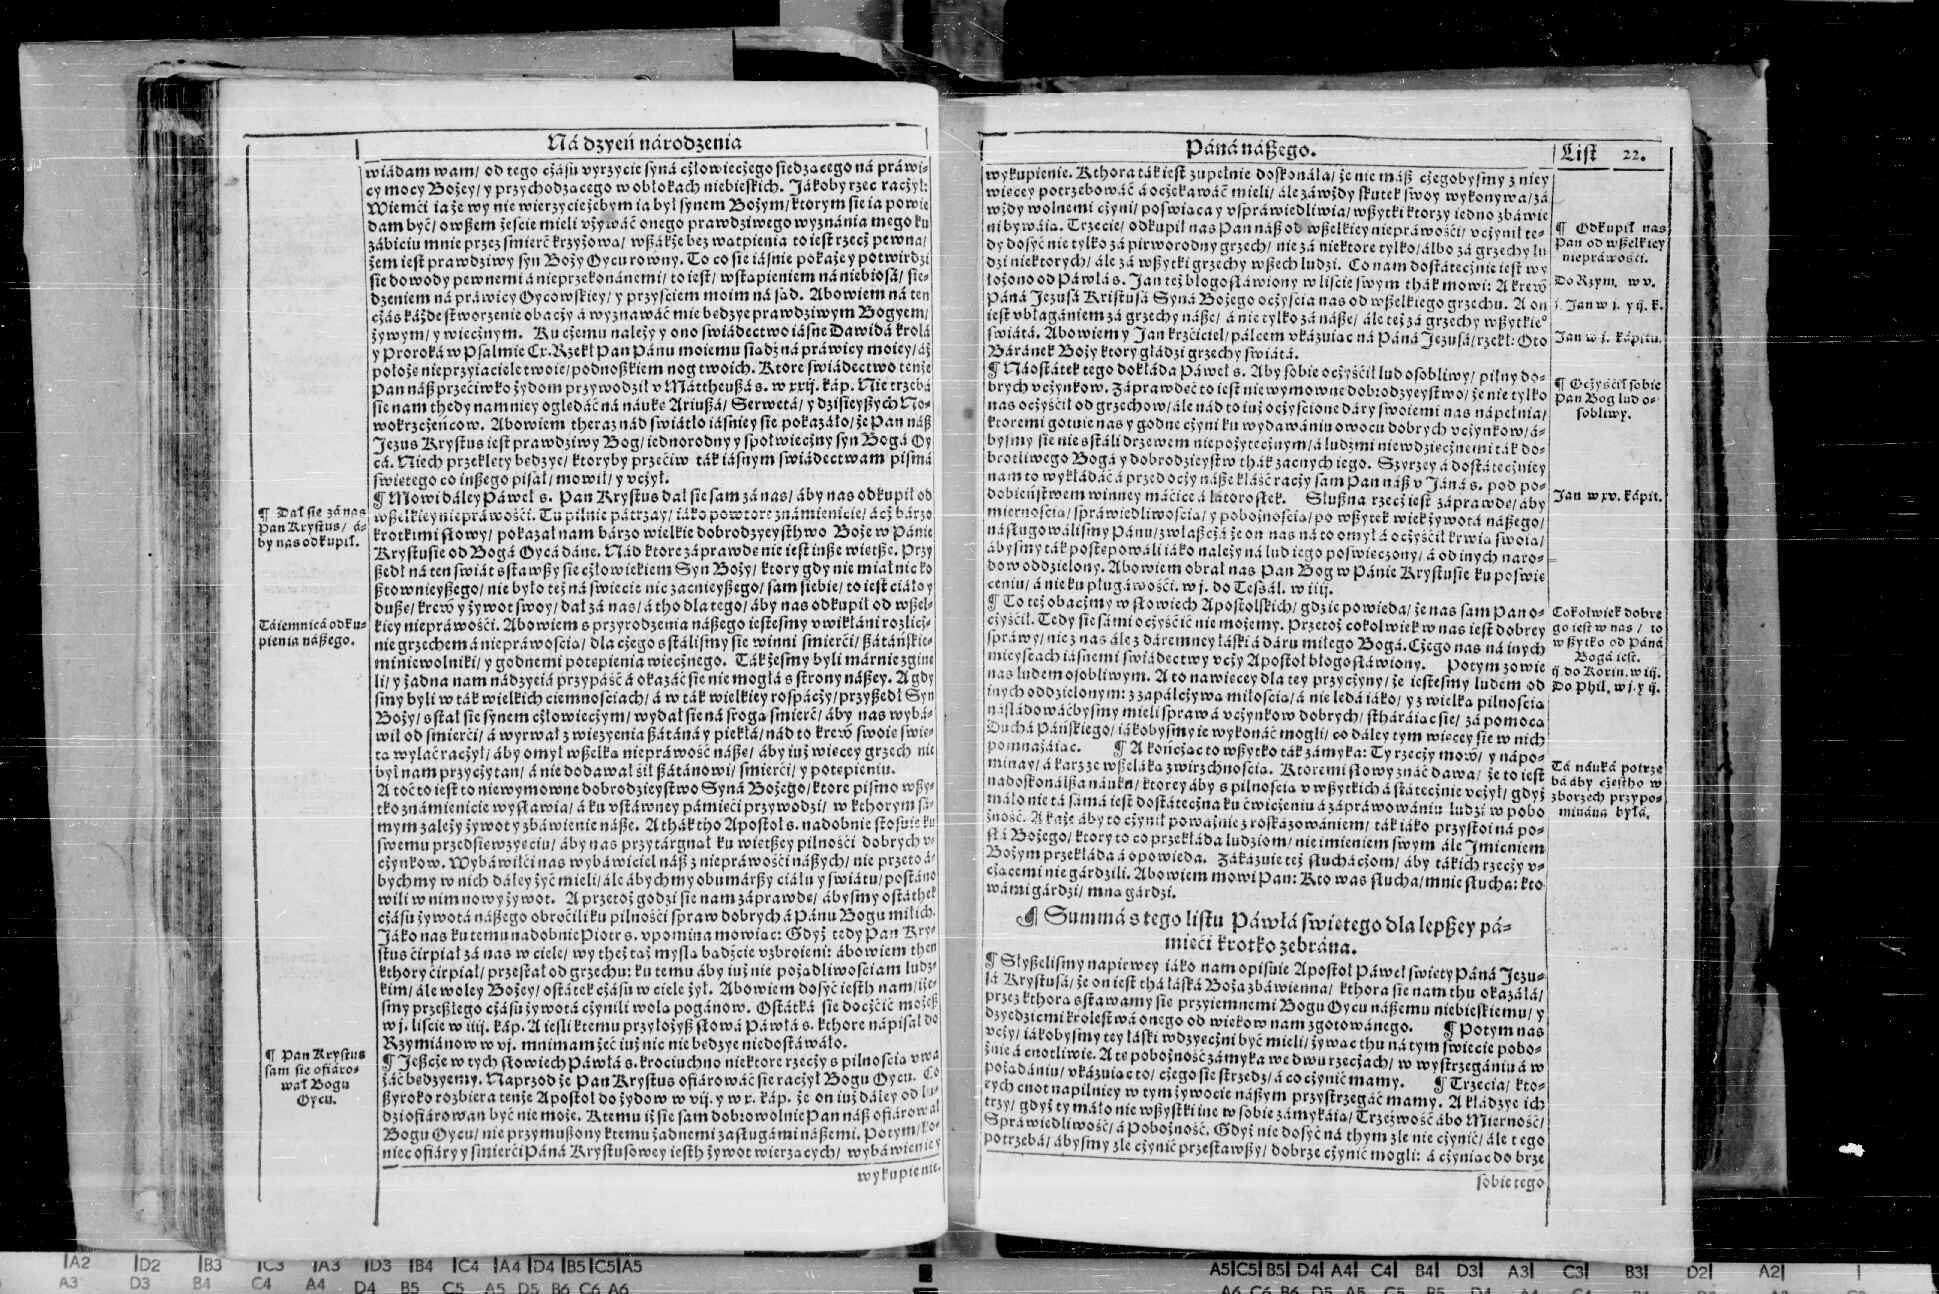 Ná dzyeń národzenia
wiádam wam/ od tego cżásu vyrzycie syná cżłowiecżego siedzącego ná práwi-
cy mocy Bożey/ y przychodzącego w obłokách niebieskich. Jákoby rzec racżył:
Wiemći ia że wy nie wierzycie żebym ia był synem Bożym/ ktorym sie ia powie
dam być/ owßem żeście mieli vżywáć onego prawdziwego wyznánia mego ku
zábiciu mnie przez śmierć krzyżową/ wßákże bez wątpienia to iest rzecż pewna/
żem iest prawdziwy syn Boży Oycu rowny. To co sie iáśnie pokaże y potwirdzi
sie dowody pewnemi á nieprzekonánemi/ to iest/ wstąpieniem ná niebiosá/ sie-
dzeniem ná práwicy Oycowskiey/ y przyściem moim ná sąd. Abowiem ná ten
cżás káżde stworzenie obacży á wyznawáć mie będzye prawdziwym Bogyem/
żywym/ y wiecżnym. Ku cżemu należy y ono świádectwo iásne Dawidá krolá
y Proroká w Psalmie Cx. Rzekł Pan Pánu moiemu siądź ná práwicy moiey/ áż
położę nieprzyiaciele twoie/ podnożkiem nog twoich. Ktore świádectwo tenże
Pan náß przećiwko żydom przywodził v Máttheußá s. w xxij. káp. Nie trzebá
sie nam thedy namniey oglądáć ná náukę Ariußá/ Serwetá/ y dzisieyßych No-
wokrzcżeńcow. Abowiem theraz nád świátło iáśniey sie pokazáło/ że Pan náß
Jezus Krystus iest prawdziwy Bog/ iednorodny y społwiecżny syn Bogá Oy
cá. Niech przeklęty będzye/ ktoryby przećiw ták iásnym świádectwam pismá
świętego co inßego pisał/ mowił/ y vcżył.
¶ Mowi dáley Páweł s. Pan Krystus dał sie sam zá nas/ áby nas odkupił od
wßelkiey niepráwośći. Tu pilnie pátrzay/ iáko powtore známienicie/ ácż bárzo
krotkimi słowy/ pokazał nam bárzo wielkie dobrodzyeysthwo Boże w Pánie
Krystusie od Bogá Oycá dáne. Nád ktore záprawdę nie iest inße więtße. Przy
ßedł ná ten świát sstawßy sie cżłowiekiem Syn Boży/ ktory gdy nie miał nic ko
ßtownieyßego/ nie było też ná świecie nic zacnieyßego/ sam siebie/ to iest ciáło y
dußę/ krew y żywot swoy/ dał zá nas/ á tho dla tego/ áby nas odkupił od wßel-
kiey niepráwośći. Abowiem s przyrodzenia nászego iestesmy vwikłáni rozlicż-
nie grzechem á niepráwością/ dla cżego sstálismy sie winni śmierći/ ßátáńskie-
mi niewolniki/ y godnemi potępienia wiecżnego. Tákżesmy byli márnie zginę
li/ y żadna nam nádzyeiá przypáść á okázáć sie nie mogłá s strony nászey. A gdy
smy byli w ták wielkich ciemnościách/ á w ták wielkiey rospácży/ przyßedł Syn
Boży/ sstał sie synem cżłowiecżym/ wydał sie ná srogą śmierć/ áby nas wybá-
wił od śmierći/ á wyrwał z więzyenia ßátáná y piekłá/ nád to krew swoię świę-
tą wylać racżył/ áby omył wßelką niepráwość náßę/ áby iuż więcey grzech nie
był nam przycżytan/ á nie dodawał śił ßátánowi/ śmierći/ y potępieniu.
A toć to iest to niewymowne dobrodzieystwo Syná Bożego/ ktore pismo wßy-
tko známienicie wysławia/ á ku vstáwney pámięći przywodzi/ w kthorym sá-
mym zależy żywot y zbáwienie náße. A thák tho Apostoł s. nadobnie stosuie ku
swemu przedsięwzyęciu/ áby nas przytárgnął ku więtßey pilnośći dobrych v-
cżynkow. Wybáwiłći nas wybáwiciel náß z niepráwośći náßych/ nie przeto á-
bychmy w nich dáley żyć mieli/ ále ábychmy obumárßy ciáłu y świátu/ postáno
wili w nim nowy żywot. A przetoż godzi sie nam záprawdę/ ábysmy ostáthek
cżásu żywotá náßego obroćili ku pilnośći spraw dobrych á Pánu Bogu miłich.
Jáko nas ku temu nadobnie Piotr s. vpomina mowiąc: Gdyż tedy Pan Kry-
stus ćirpiał zá nas w ciele/ wy theż táż myślą bądźcie vzbroieni: ábowiem then
kthory ćirpiał/ przestał od grzechu: ku temu áby iuż nie pożądliwościam ludz-
kim/ ále woley Bożey/ ostátek cżásu w ciele żył. Abowiem dosyć iesth nam/ iże-
smy przeßłego cżásu żywotá cżynili wolą pogánow. Ostátká sie docżćić możeß
w j. liście w iiij. káp. A iesli k temu przyłożyß słowá Páwłá s. kthore nápisał do
Rzymiánow w vj. mnimam żeć iuż nic nie będzye niedostawáło.
¶ Jeßcże w tych słowiech Páwłá s. krociuchno niektore rzecży s pilnością vwa
żáć będzyemy. Naprzod że Pan Krystus ofiárowáć sie racżył Bogu Oycu. Co
ßyroko rozbiera tenże Apostoł do żydow w vij. y w x. káp. że on iuż dáley od lu-
dzi ofiárowan być nie może. K temu iż sie sam dobrowolnie Pan náß ofiárował
Bogu Oycu/ nie przymußony k temu żadnemi zasługámi náßemi. Potym/ ko-
niec ofiáry y śmierći Páná Krystusowey iesth żywot wierzących/ wybáwienie y
wykupienie.
¶ Dał sie zá nas
Pan Krystus/ á-
by nas odkupił.
Táiemnicá odku-
pienia náßego.
¶ Pan Krystus
sam sie ofiáro-
wał Bogu
Oycu.
Páná náßego.
List 22.
wykupienie. Kthora ták iest zupełnie doskonáła/ że nie máß cżegobysmy z niey
więcey potrzebowáć á ocżekawáć mieli/ ále záwżdy skutek swoy wykonywa/ zá
wżdy wolnemi cżyni/ poświąca y vspráwiedliwia/ wßytki ktorzy iedno zbáwie
ni bywáią. Trzecie/ odkupił nas Pan náß od wßelkiey niepráwośći/ vcżynił te-
dy dosyć nie tylko zá pirworodny grzech/ nie zá niektore tylko/ álbo zá grzechy lu
dzi niektorych/ ále zá wßytki grzechy wßech ludzi. Co nam dostátecżnie iest wy
łożono od Páwłá s. Jan też błogosłáwiony w liście swym thák mowi: A krew
Páná Jezusá Kristusá Syná Bożego ocżyścia nas od wßelkiego grzechu. A on
iest vbłagániem zá grzechy náße/ á nie tylko zá náße/ ále też zá grzechy wßytkieº
świátá. Abowiem y Jan krzcżiciel/ pálcem vkázuiąc ná Páná Jezusá/ rzekł: Oto
Báránek Boży ktory głádzi grzechy świátá.
¶ Náostátek tego dokłáda Páweł s. Aby sobie ocżyśćił lud osobliwy/ pilny do-
brych vcżynkow. Záprawdęć to iest niewymowne dobrodzyeystwo/ że nie tylko
nas ocżyśćił od grzechow/ ále nád to iuż ocżyścione dáry swoiemi nas nápełnia/
ktoremi gotuie nas y godne cżyni ku wydawániu owocu dobrych vcżynkow/ á-
bysmy sie nie sstáli drzewem niepożytecżnym/ á ludźmi niewdziecżnemi ták do-
brotliwego Bogá y dobrodzieystw thák zacnych iego. Szyrzey á dostátecżniey
nam to wykłádáć á przed ocży náße kłáść racży sam Pan náß v Janá s. pod po-
dobieństwem winney máćice á látorośłek. Słußna rzecż iest záprawdę/ áby
miernością/ spráwiedliwością/ y pobożnością/ po wßytek wiek żywotá náßego/
násługowálismy Pánu/ zwłaßcżá że on nas ná to omył á ocżyśćił krwią swoią/
ábysmy ták postępowáli iáko należy ná lud iego poświęcony/ á od inych naro-
dow oddzielony. Abowiem obrał nas Pan Bog w Pánie Krystusie ku poświę
ceniu/ á nie ku plugáwośći. w j. do Tessál. w iiij.
¶ To też obacżmy w słowiech Apostolskich/ gdzie powieda/ że nas sam Pan o-
cżyśćił. Tedy sie sámi ocżyśćić nie możemy. Przetoż cokolwiek w nas iest dobrey
spráwy/ nie z nas ále z dáremney łáski á dáru miłego Bogá. Cżego nas ná inych
mieyscách iásnemi świádectwy vcży Apostoł błogosłáwiony. Potym zowie
nas ludem osobliwym. A to nawięcey dla tey przycżyny/ że iestesmy ludem od
inych oddzielonym: z zápálcżywą miłością/ á nie ledá iáko/ y z wielką pilnością
násládowáćbysmy mieli spraw á vcżynkow dobrych/ stháráiąc sie/ zá pomocą
Duchá Páńskiego/ iákobysmy ie wykonáć mogli/ co dáley tym więcey sie w nich
pomnażáiąc. ¶ A końcżąc to wßytko ták zámyka: Ty rzecży mow/ y nápo-
minay/ á karz ze wßeláką zwirzchnością. Ktoremi słowy znáć dawa/ że to iest
nadoskonálßa náuka/ ktorey áby s pilnością v wßytkich á státecżnie vcżył/ gdyż
máło nie tá sámá iest dostátecżna ku ćwicżeniu á zápráwowániu ludzi w pobo
żność. A każe áby to cżynił poważnie z roskazowániem/ ták iáko przystoi ná po-
słá Bożego/ ktory to co przekłáda ludziom/ nie imieniem swym ále Imieniem
Bożym przekłáda á opowieda. Zákázuie też słuchácżom/ áby tákich rzecży v-
cżącemi nie gárdzili. Abowiem mowi Pan: Kto was słucha/ mnie słucha: kto
wámi gárdzi/ mną gárdzi.
¶ Summá s tego listu Páwłá świętego dla lepßey pá-
mięći krotko zebrána.
¶ Słyßelismy napirwey iáko nam opisuie Apostoł Páweł święty Páná Jezu-
sá Krystusá/ że on iest thá łáská Boża zbáwienna/ kthora sie nam thu okazáłá/
przez kthorą sstawamy sie przyiemnemi Bogu Oycu náßemu niebieskiemu/ y
dzyedzicmi krolestwá onego od wiekow nam zgotowánego. ¶ Potym nas
vcży/ iákobysmy tey łáski wdzyecżni być mieli/ żywąc thu ná tym świecie pobo-
żnie á cnotliwie. A tę pobożność zámyka we dwu rzecżách/ w wystrzegániu á w
pożądániu/ vkázuiąc to/ cżego sie strzedz/ á co cżynić mamy. ¶ Trzecia/ kto-
rych cnot napilniey w tym żywocie náßym przystrzegáć mamy. A kładzye ich
trzy/ gdyż ty máło nie wßystki ine w sobie zámykáią/ Trzeźwość ábo Mierność/
Spráwiedliwość/ á Pobożność. Gdyż nie dosyć ná thym zle nie cżynić/ ále tego
potrzebá/ ábysmy zle cżynić przestawßy/ dobrze cżynić mogli: á cżyniąc dobrze
sobie tego
¶ Odkupił nas
Pan od wßelkiey
niepráwośći.
Do Rzym. w v.
j. Jan w j. y ij. k.
Jan w j. kápitu.
¶ Ocżyśćił sobie
Pan Bog lud o-
sobliwy.
Jan w xv. kápit.
Cokolwiek dobre
go iest w nas/ to
wßytko od Páná
Bogá iest.
ij. do Korin. w iij.
Do Phil. w j. y ij.
Tá náuká potrze
bá áby cżęstho w
zborzech przypo-
mináná byłá.
A2 D2 B3 C3 A3 D3 B4 C4 A4 D4 B5 C5 A5
A3 D3 B4 C4 A4 D4 B5 C5 A5 D5 B6 C6 A6
A5 C5 B5 D4 A4 C4 B4 D3 A3 C3 B3 D2 A2